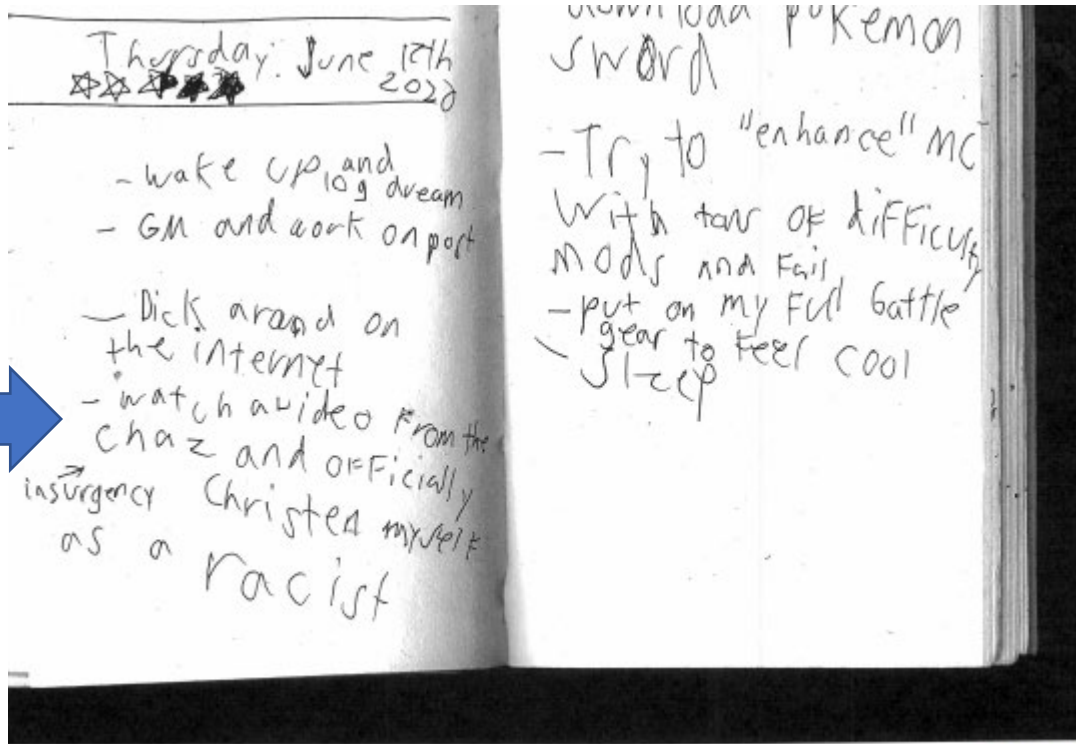 Thursday. June 12th
2020
- wake up and
log dream
- GM and work on post
- Dick around on
the internet
- watch a video from the
chaz and officially
insurgency Christen myself
as a racist
download pokemon
sword
- Try to "enhance" MC
with tons of difficulty
mods and fail
- put on my full battle
gear to feel cool
- sleep